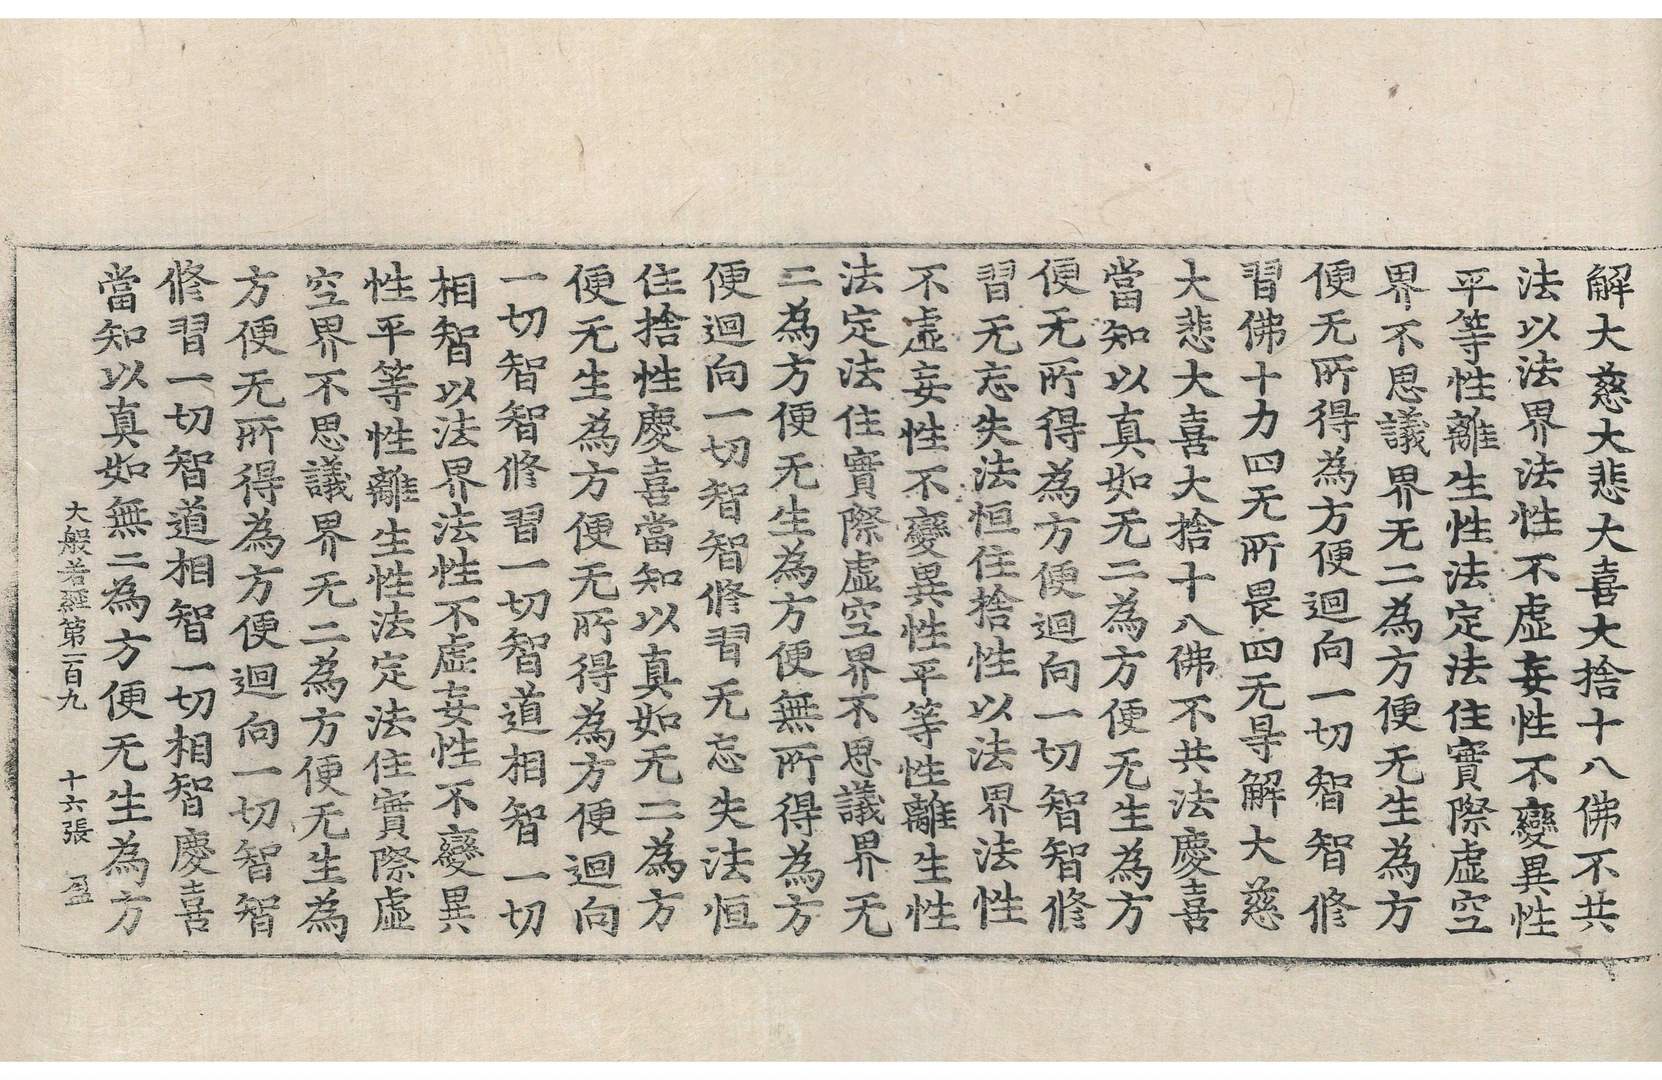 解大慈大悲大喜大捨十八佛不共
法以法界法性不虛妄性不變異性
平等性離生性法定法住實際虛空
界不思議界无二為方便无生為方
便无所得為方便迴向一切智智修
習佛十力四无所畏四无㝵解大慈
大悲大喜大捨十八佛不共法慶喜
當知以真如无二為方便无生為方
便无所得為方便迴向一切智智修
習无忘失法恒住捨性以法界法性
不虛妄性不變異性平等性離生性
法定法住實際虛空界不思議界无
二為方便无生為方便無所得為方
便迴向一切智智修習无忘失法恒
住捨性慶喜當知以真如无二為方
便无生為方便无所得為方便迴向
一切智智修習一切智道相智一切
相智以法界法性不虛妄性不變異
性平等性離生性法定法住實際虛
空界不思議界无二為方便无生為
方便无所得為方便迴向一切智智
修習一切智道相智一切相智慶喜
當知以真如無二為方便无生為方
大般若經第一百九 十六張 盈